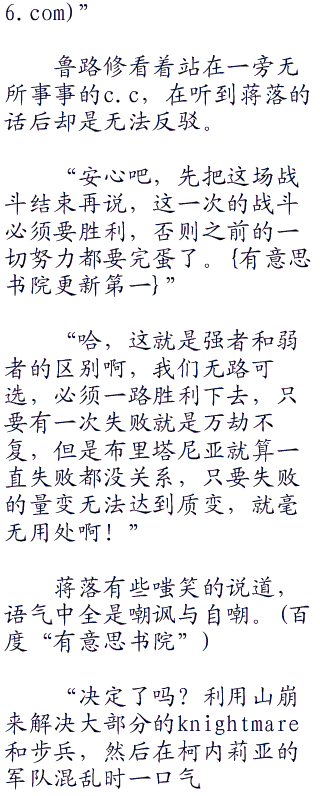 6.com)”
鲁路修看着站在一旁无
所事事的c.c，在听到蒋落的
话后却是无法反驳。
“安心吧，先把这场战
斗结束再说，这一次的战斗
必须要胜利，否则之前的一
切努力都要完蛋了。{有意思
书院更新第一}”
“哈，这就是强者和弱
者的区别啊，我们无路可
选，必须一路胜利下去，只
要有一次失败就是万劫不
复，但是布里塔尼亚就算一
直失败都没关系，只要失败
的量变无法达到质变，就毫
无用处啊！”
蒋落有些嗤笑的说道，
语气中全是嘲讽与自嘲。(百
度“有意思书院”)
“决定了吗？利用山崩
来解决大部分的knightmare
和步兵，然后在柯内莉亚的
军队混乱时一口气